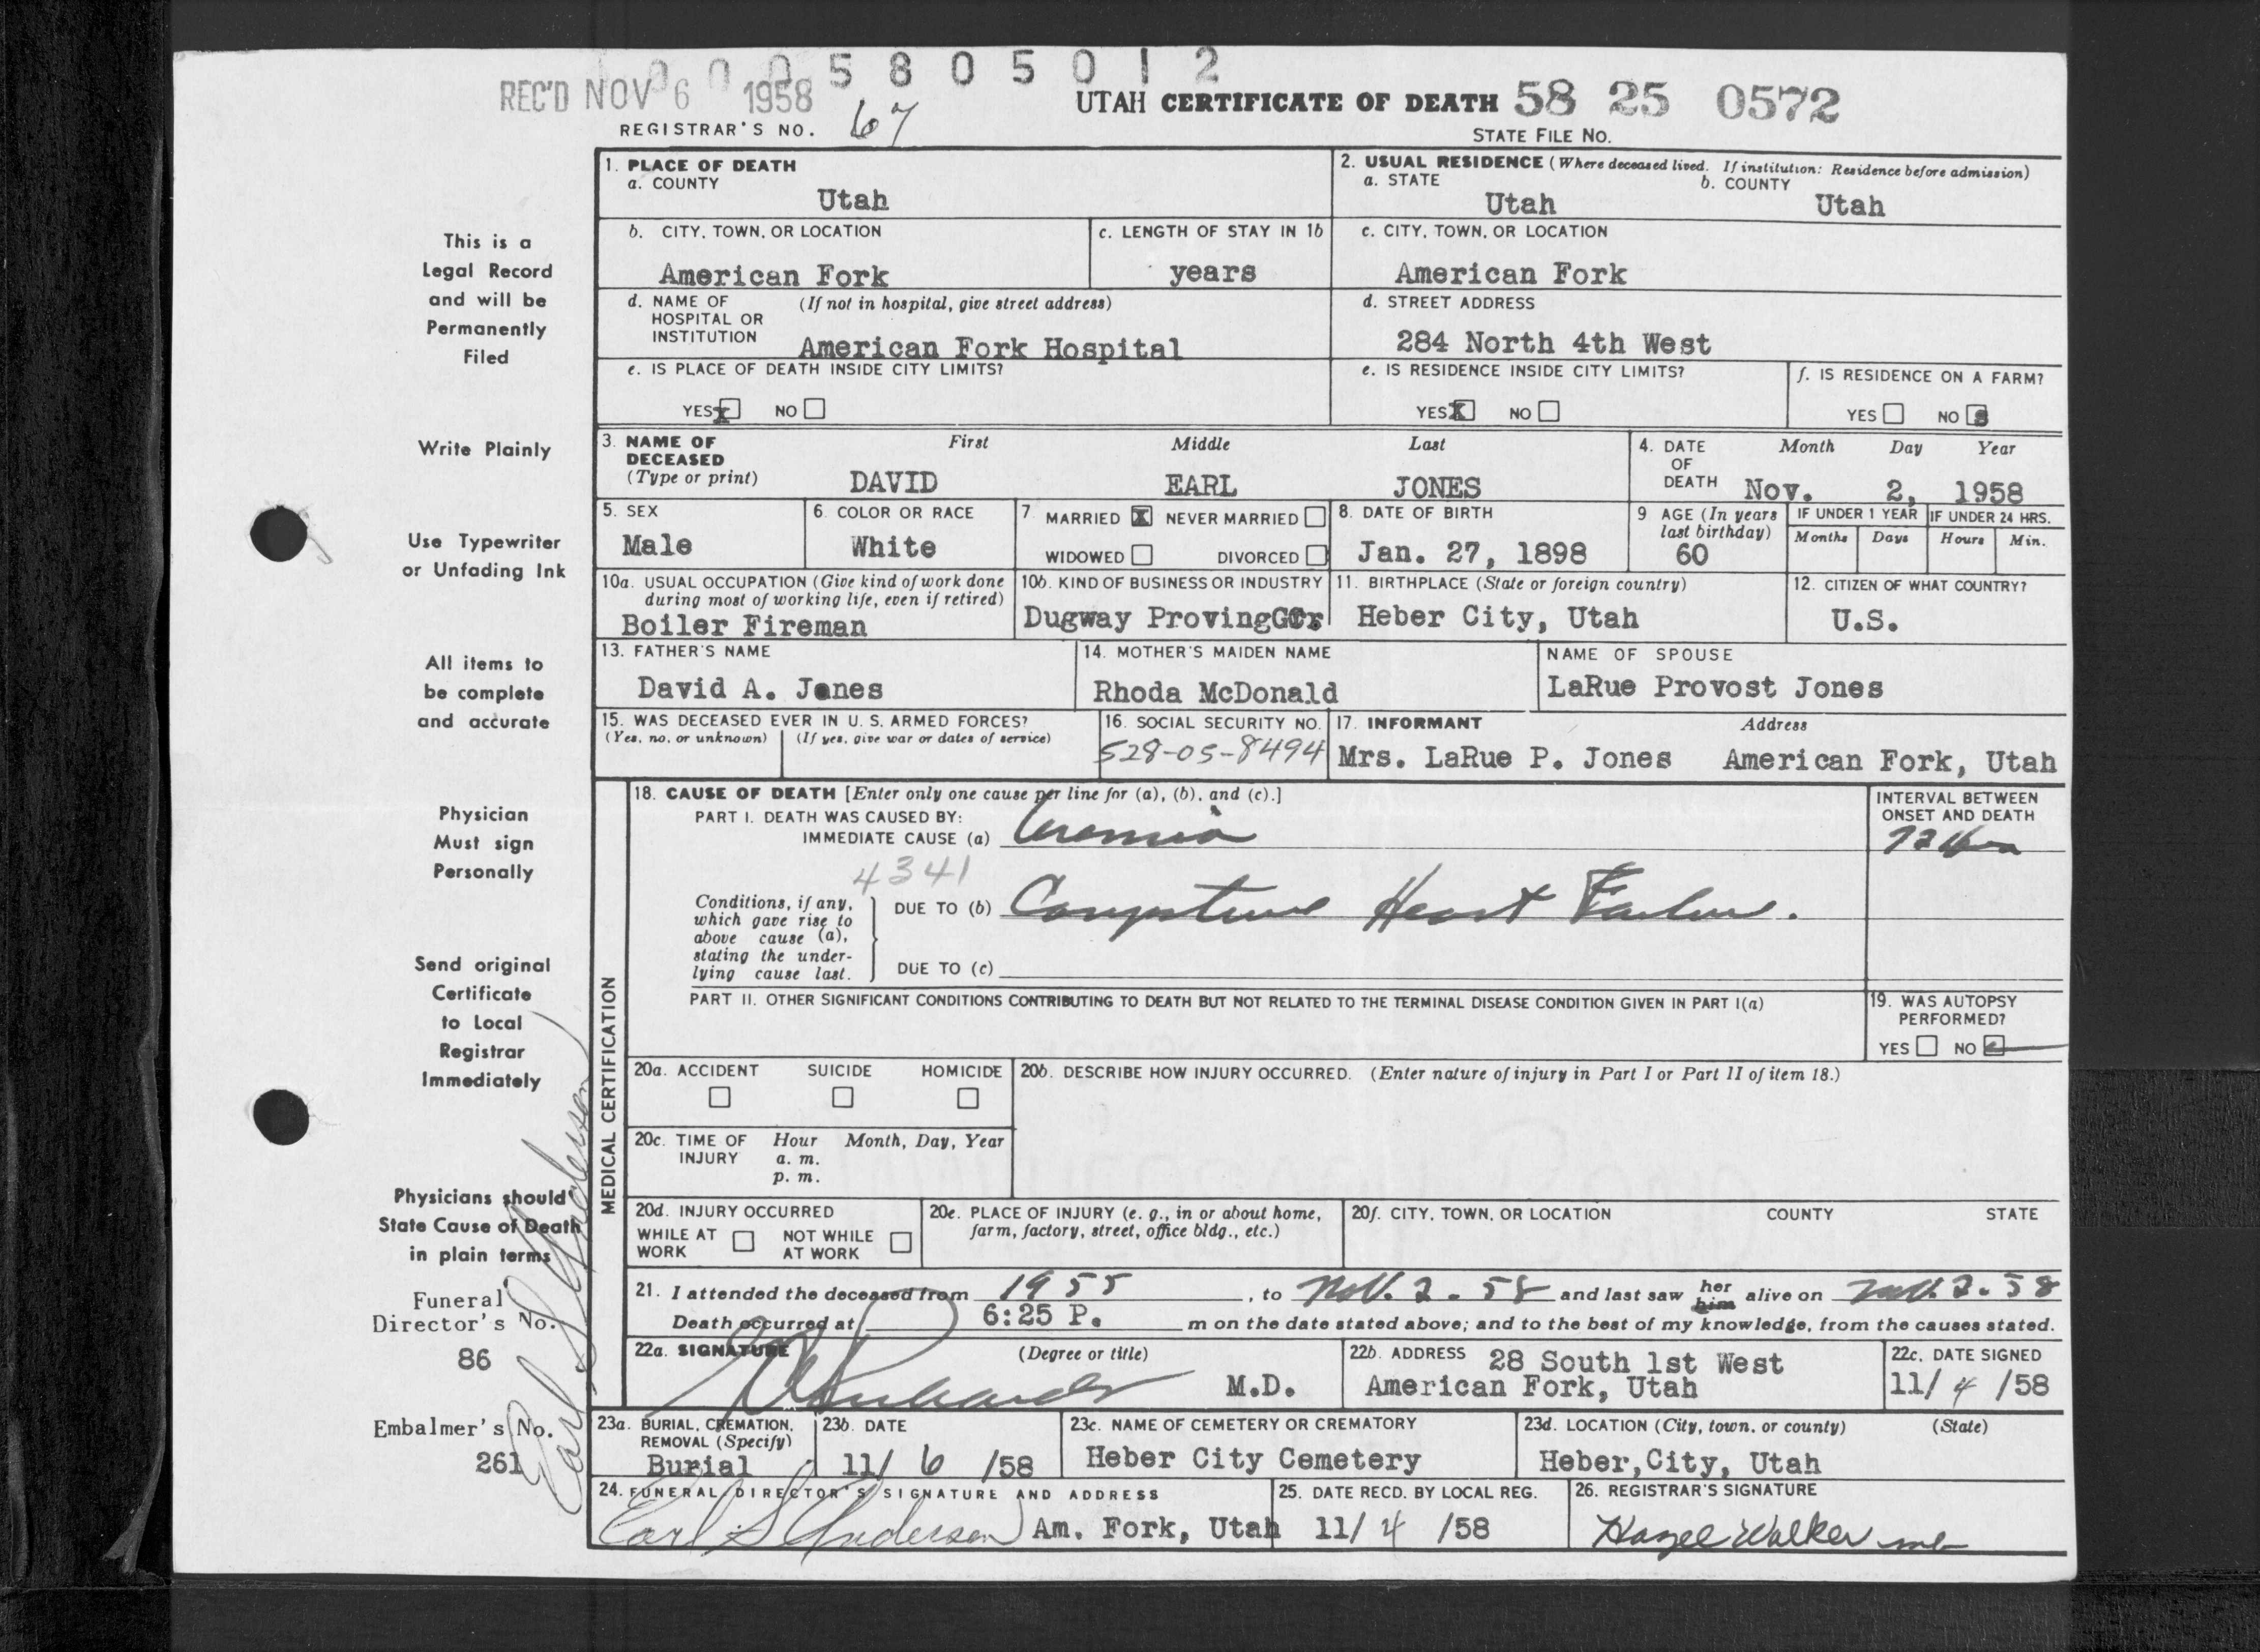 0 0 0 5 8 0 5 0 1 2
REC'D NOV 6 1958
UTAH CERTIFICATE OF DEATH 58 25 0572
REGISTRAR'S NO. 67
STATE FILE NO.
This is a
Legal Record
and will be
Permanently
Filed
Write Plainly
Use Typewriter
or Unfading Ink
All items to
be complete
and accurate
Physician
Must sign
Personally
Send original
Certificate
to Local
Registrar
Immediately
Physicians should
State Cause of Death
in plain terms
Funeral
Director's No.
86
Embalmer's No.
261
Earl S Anderson
1. PLACE OF DEATH
a. COUNTY
Utah
2. USUAL RESIDENCE (Where deceased lived. If institution: Residence before admission)
a. STATE
Utah
b. COUNTY
Utah
b. CITY, TOWN, OR LOCATION
American Fork
c. LENGTH OF STAY IN 1b
years
c. CITY, TOWN, OR LOCATION
American Fork
d. NAME OF HOSPITAL OR INSTITUTION (If not in hospital, give street address)
American Fork Hospital
d. STREET ADDRESS
284 North 4th West
e. IS PLACE OF DEATH INSIDE CITY LIMITS?
YES X NO
e. IS RESIDENCE INSIDE CITY LIMITS?
YES X NO
f. IS RESIDENCE ON A FARM?
YES NO
3. NAME OF DECEASED (Type or print)
First Middle Last
DAVID EARL JONES
4. DATE OF DEATH
Month Day Year
Nov. 2, 1958
5. SEX
Male
6. COLOR OR RACE
White
7. MARRIED X NEVER MARRIED
WIDOWED DIVORCED
8. DATE OF BIRTH
Jan. 27, 1898
9 AGE (In years last birthday)
60
IF UNDER 1 YEAR
Months Days
IF UNDER 24 HRS.
Hours Min.
10a. USUAL OCCUPATION (Give kind of work done during most of working life, even if retired)
Boiler Fireman
10b. KIND OF BUSINESS OR INDUSTRY
Dugway Proving
11. BIRTHPLACE (State or foreign country)
Heber City, Utah
12. CITIZEN OF WHAT COUNTRY?
U.S.
13. FATHER'S NAME
David A. Jones
14. MOTHER'S MAIDEN NAME
Rhoda McDonald
NAME OF SPOUSE
LaRue Provost Jones
15. WAS DECEASED EVER IN U. S. ARMED FORCES?
(Yes, no, or unknown) (If yes, give war or dates of service)
16. SOCIAL SECURITY NO.
528-05-8494
17. INFORMANT Address
Mrs. LaRue P. Jones American Fork, Utah
MEDICAL CERTIFICATION
18. CAUSE OF DEATH [Enter only one cause per line for (a), (b), and (c).]
PART I. DEATH WAS CAUSED BY:
IMMEDIATE CAUSE (a) Uremia
INTERVAL BETWEEN ONSET AND DEATH
4341
Conditions, if any, which gave rise to above cause (a), stating the underlying cause last.
DUE TO (b) Congestive Heart Failure.
DUE TO (c)
PART II. OTHER SIGNIFICANT CONDITIONS CONTRIBUTING TO DEATH BUT NOT RELATED TO THE TERMINAL DISEASE CONDITION GIVEN IN PART I(a)
19. WAS AUTOPSY PERFORMED?
YES NO
20a. ACCIDENT SUICIDE HOMICIDE
20b. DESCRIBE HOW INJURY OCCURRED. (Enter nature of injury in Part I or Part II of item 18.)
20c. TIME OF INJURY Hour Month, Day, Year
a. m.
p. m.
20d. INJURY OCCURRED
WHILE AT WORK NOT WHILE AT WORK
20e. PLACE OF INJURY (e. g., in or about home, farm, factory, street, office bldg., etc.)
20f. CITY, TOWN, OR LOCATION COUNTY STATE
21. I attended the deceased from 1955, to Nov. 2 - 58 and last saw her him alive on Nov. 2 - 58
Death occurred at 6:25 P. m on the date stated above; and to the best of my knowledge, from the causes stated.
22a. SIGNATURE (Degree or title)
M.D.
22b. ADDRESS 28 South 1st West
American Fork, Utah
22c. DATE SIGNED
11/ 4 /58
23a. BURIAL, CREMATION, REMOVAL (Specify)
Burial
23b. DATE
11/ 6 /58
23c. NAME OF CEMETERY OR CREMATORY
Heber City Cemetery
23d. LOCATION (City, town, or county) (State)
Heber,City, Utah
24. FUNERAL DIRECTOR'S SIGNATURE AND ADDRESS
Earl S Anderson Am. Fork, Utah
25. DATE RECD. BY LOCAL REG.
11/ 4 /58
26. REGISTRAR'S SIGNATURE
Hazel Walker